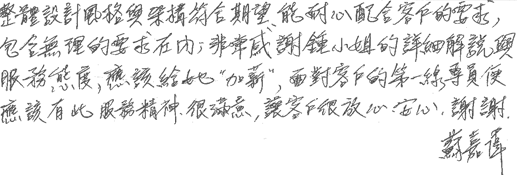 整體設計風格與架構符合期望,能耐心配合客戶的要求,
包含無理的要求在內;非常感謝鍾小姐的詳細解說與
服務態度,應該給她"加薪",面對客戶的第一線專員便
應該有此服務精神.很滿意,讓客戶很放心.安心.謝謝.
蘇嘉偉